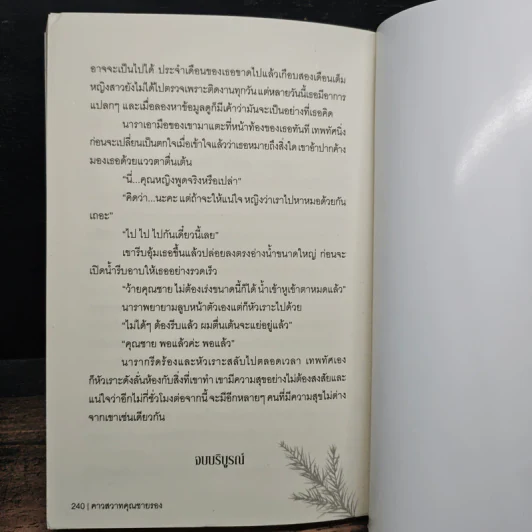 อาจจะเป็นไปได้ ประจำเดือนของเธอขาดไปแล้วเกือบสองเดือนเต็ม
หญิงสาวยังไม่ได้ไปตรวจเพราะติดงานทุกวัน แต่หลายวันนี้เธอมีอาการ
แปลกๆ และเมื่อลองหาข้อมูลดูก็มีเค้าว่ามันจะเป็นอย่างที่เธอคิด
นาราเอามือของเขามาแตะที่หน้าท้องของเธอทันที เทพทัศนิ่ง
ก่อนจะเปลี่ยนเป็นตกใจเมื่อเข้าใจแล้วว่าเธอหมายถึงสิ่งใด เขาอ้าปากค้าง
มองเธอด้วยแววตาตื่นเต้น
“นี่...คุณหญิงพูดจริงหรือเปล่า”
“คิดว่า...นะคะ แต่ถ้าจะให้แน่ใจ หญิงว่าเราไปหาหมอด้วยกัน
เถอะ”
“ไป ไป ไปกันเดี๋ยวนี้เลย”
เขารีบอุ้มเธอขึ้นแล้วปล่อยลงตรงอ่างน้ำขนาดใหญ่ ก่อนจะ
เปิดน้ำรีบอาบให้เธออย่างรวดเร็ว
“ว้ายคุณชาย ไม่ต้องเร่งขนาดนี้ก็ได้ น้ำเข้าหูเข้าตาหมดแล้ว”
นาราพยายามลูบหน้าตัวเองแต่ก็หัวเราะไปด้วย
“ไม่ได้ๆ ต้องรีบแล้ว ผมตื่นเต้นจะแย่อยู่แล้ว”
“คุณชาย พอแล้วค่ะ พอแล้ว”
นารากรีดร้องและหัวเราะสลับไปตลอดเวลา เทพทัศเอง
ก็หัวเราะดังลั่นห้องกับสิ่งที่เขาทำ เขามีความสุขอย่างไม่ต้องสงสัยและ
แน่ใจว่าอีกไม่กี่ชั่วโมงต่อจากนี้ จะมีอีกหลายๆ คนที่มีความสุขไม่ต่าง
จากเขาเช่นเดียวกัน
จบบริบูรณ์
240 | คาวสวาทคุณชายรอง